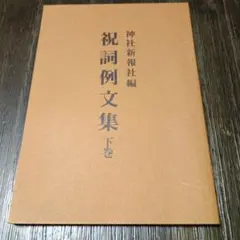 神社新報社編
祝詞例文集 下巻